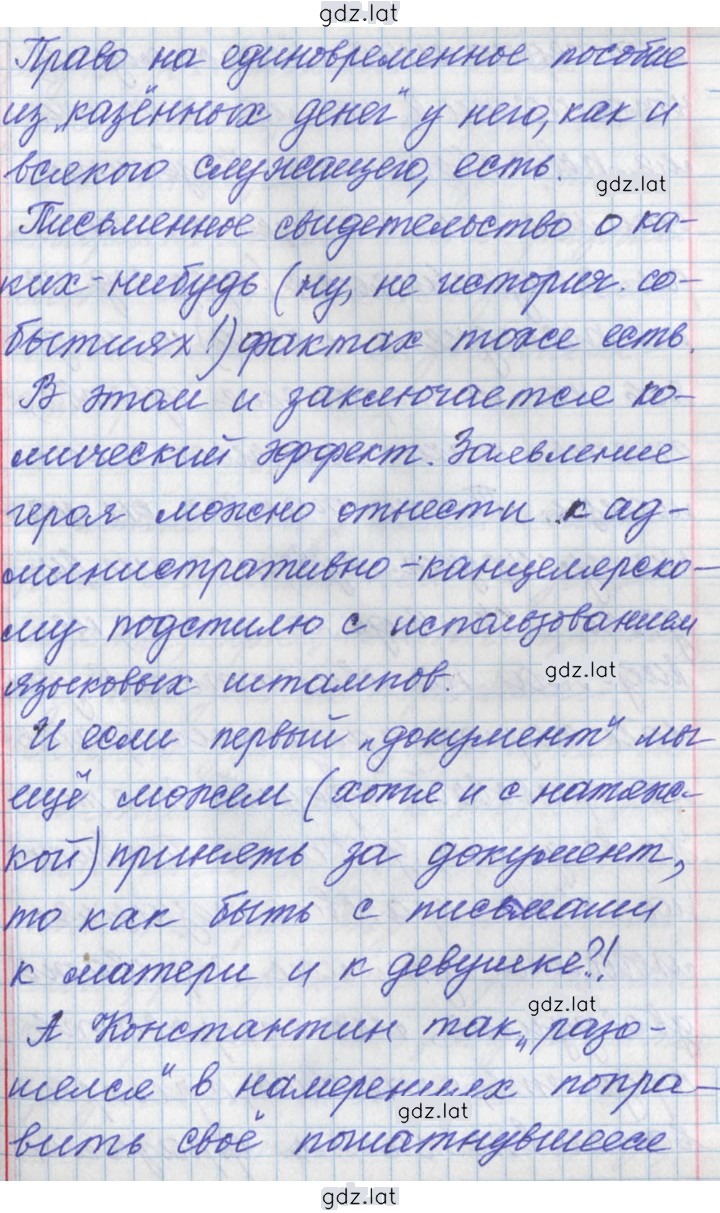 gdz.lat
Право на единовременное пособие
из „казённых денег" у него, как и
всякого служащего, есть.
gdz.lat
Письменное свидетельство о ка-
ких-нибудь (ну, не историч. со-
бытиях!) фактах тоже есть.
В этом и заключается ко-
мический эффект. Заявление
героя можно отнести к ад-
министративно-канцелярско-
му подстилю с использованием
языковых штампов.
gdz.lat
И если первый „документ" мы
ещё можем (хотя и с натяж-
кой) принять за документ,
то как быть с письмами
к матери и к девушке?!
gdz.lat
А Константин так „разо-
шелся" в намерениях попра-
gdz.lat
вить своё пошатнувшееся
gdz.lat